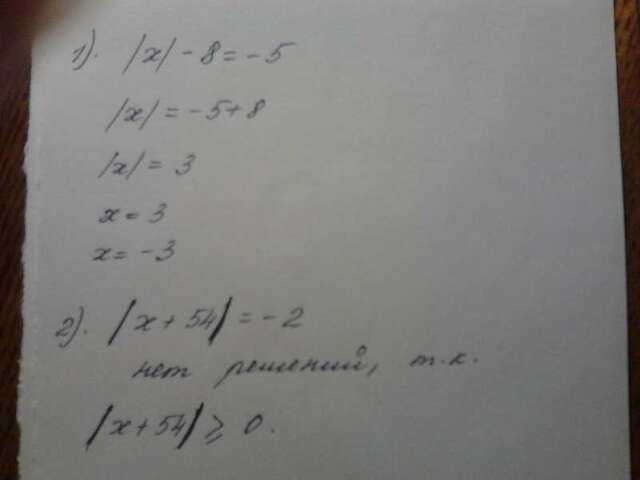 1). |x| - 8 = -5
|x| = -5+8
|x| = 3
x = 3
x = -3
2). |x + 54| = -2
нет решений, т.к.
|x+54| ⩾ 0.